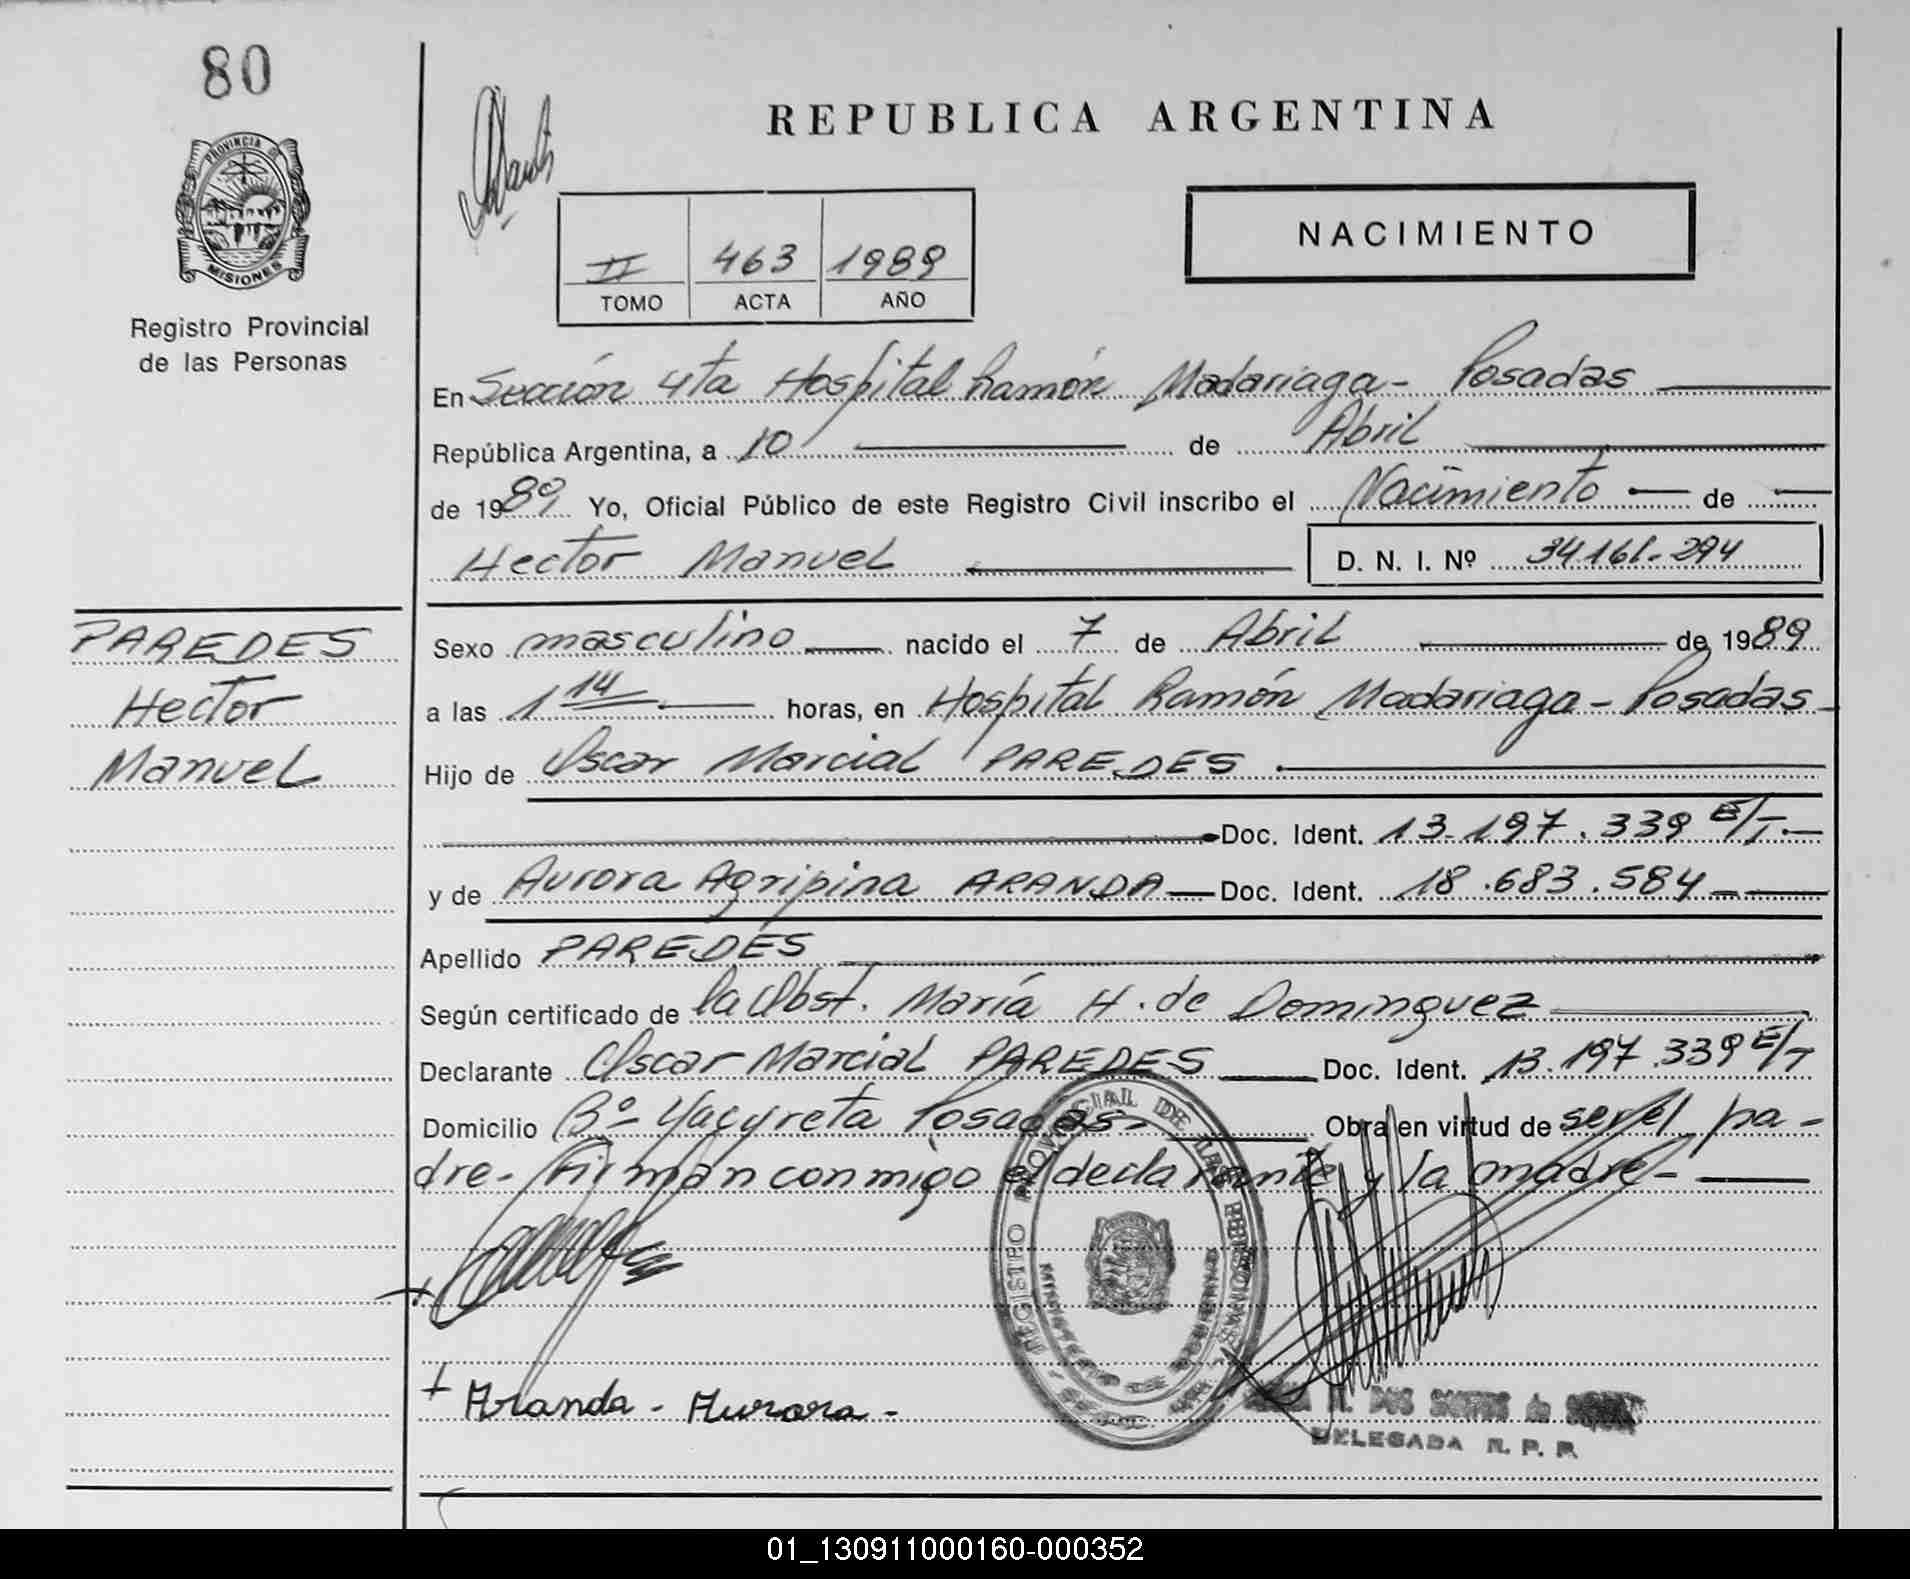 80
PROVINCIA DE
MISIONES
Registro Provincial
de las Personas
REPUBLICA ARGENTINA
NACIMIENTO
II 463 1989
TOMO ACTA AÑO
En Sección 4ta Hospital Ramón Madariaga - Posadas
República Argentina, a 10 de Abril
de 1989 Yo, Oficial Público de este Registro Civil inscribo el Nacimiento de
Hector Manuel D. N. I. Nº 34.161.294
PAREDES
Hector
Manuel
Sexo masculino nacido el 7 de Abril de 1989
a las 1 14 horas, en Hospital Ramón Madariaga - Posadas
Hijo de Oscar Marcial PAREDES
Doc. Ident. 13.197.339 E/T.
y de Aurora Agripina ARANDA Doc. Ident. 18.683.584
Apellido PAREDES
Según certificado de la Obst. María H. de Dominguez
Declarante Oscar Marcial PAREDES Doc. Ident. 13.197.339 E/T
Domicilio Bº Yacyreta Posadas - Obra en virtud de ser el pa-
dre - Firman conmigo el declarante y la madre -
REGISTRO PROVINCIAL DE LAS PERSONAS
+ Aranda - Aurora -
DOS SANTOS de
DELEGADA R. P. P.
01_130911000160-000352